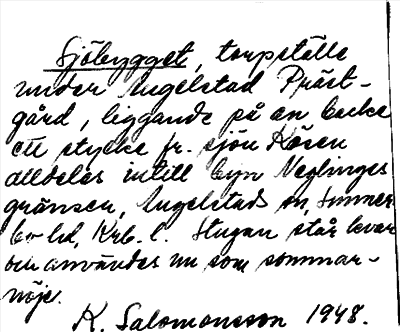 Sjöbygget, torpställe
under Ingelstad Präst-
gård, liggande på en backe
ett stycke fr. sjön Kösen
alldeles intill byn Neglinges
gränsen, Ingelstads sn, Sunner
bo hd, Krb. l. Stugan står kvar
och användes nu som sommar-
nöje.
K. Salomonsson 1948.